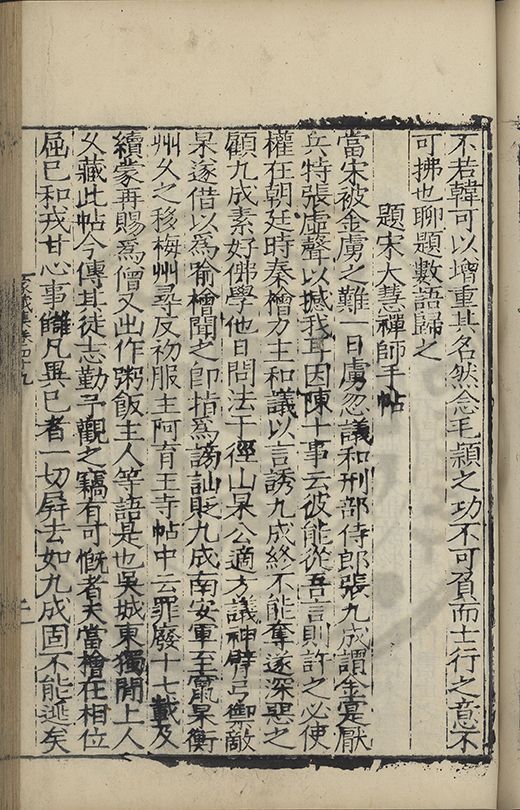 不若韓可以增重其名然念毛穎之功不可負而士行之意不
可拂也聊題數語歸之
題宋大慧禪師手帖
當宋被金虜之難一日虜忽議和刑部侍郎張九成謂金寔厭
兵特張虛聲以撼我耳因陳十事云彼能從吾言則許之必使
權在朝廷時秦檜方主和議以言誘九成終不能奪遂深惡之
顧九成素好佛學他日問法于徑山杲公適方議神臂弓禦敵
杲遂借以為喻檜聞之即指為謗訕貶九成南安軍至竄杲衡
州久之移梅州尋反初服主阿育王寺帖中云罪廢十七載及
續蒙再賜為僧又出作粥飯主人等語是也吳城東獨閒上人
久藏此帖今傳其徒志勤予觀之竊有可慨者夫當檜在相位
屈己和戎甘心事讎凡異己者一切屏去如九成固不能逃矣